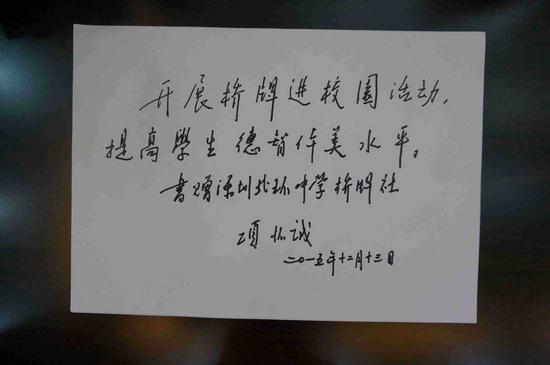 开展桥牌进校園活动,
提高學生德智体美水平。
書赠深圳北环中学桥牌社
项怀诚
二〇一五年十二月十三日